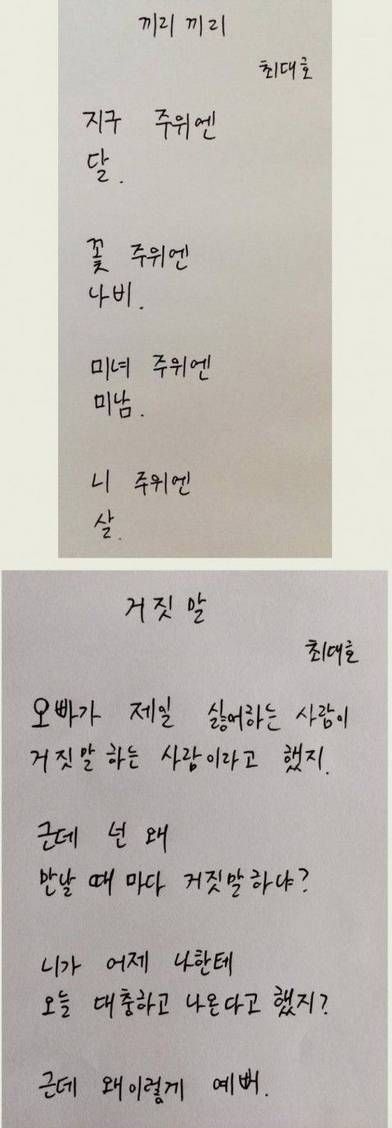 끼리끼리
최대호
지구 주위엔
달.
꽃 주위엔
나비.
미녀 주위엔
미남.
니 주위엔
살.
거짓말
최대호
오빠가 제일 싫어하는 사람이
거짓말 하는 사람이라고 했지.
근데 넌 왜
만날 때 마다 거짓말하냐?
니가 어제 나한테
오늘 대충하고 나온다고 했지?
근데 왜이렇게 예뻐.